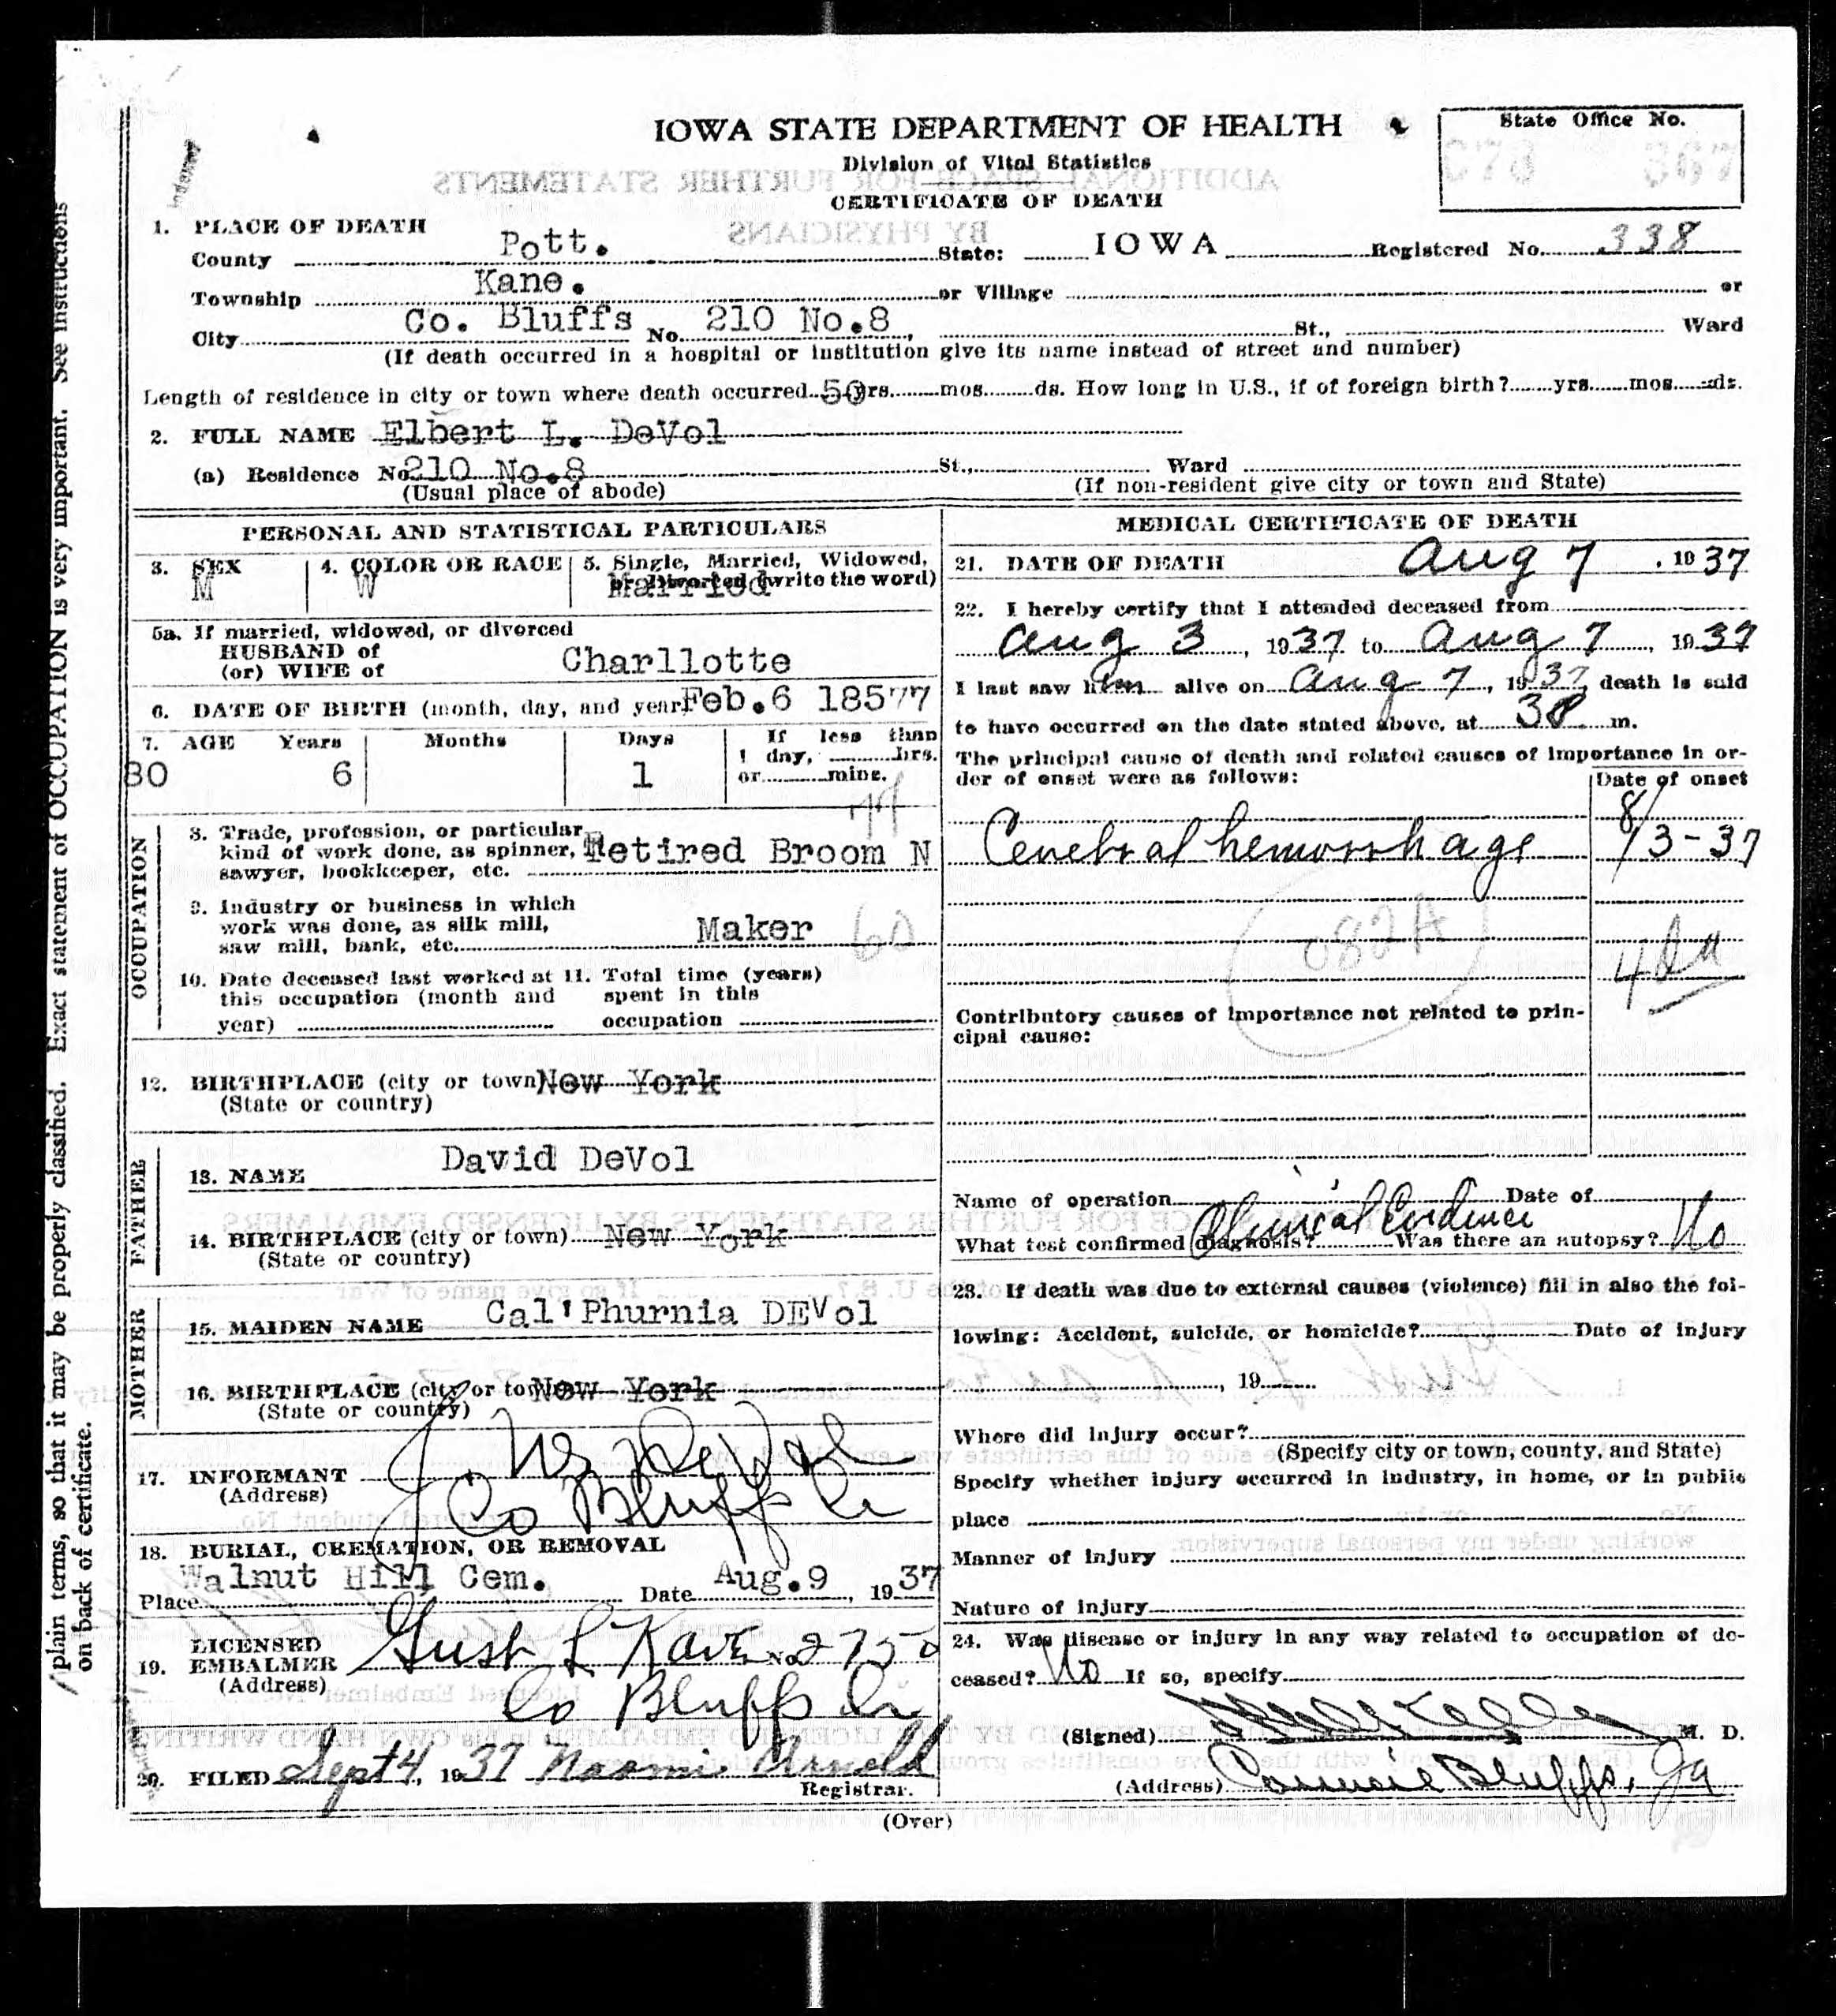 IOWA STATE DEPARTMENT OF HEALTH
State Office No.
Division of Vital Statistics
CERTIFICATE OF DEATH
1. PLACE OF DEATH
County Pott. State: IOWA Registered No. 338
Township Kane. or Village or
City Co. Bluffs No. 210 No.8, St., Ward
(If death occurred in a hospital or institution give its name instead of street and number)
Length of residence in city or town where death occurred 50 yrs. mos. ds. How long in U.S., if of foreign birth? yrs. mos. ds.
2. FULL NAME Elbert L. DeVol
(a) Residence No. 210 No.8 St., Ward
(Usual place of abode) (If non-resident give city or town and State)
PERSONAL AND STATISTICAL PARTICULARS
3. SEX M
4. COLOR OR RACE W
5. Single, Married, Widowed, or Divorced (write the word) Married
5a. If married, widowed, or divorced
HUSBAND of
(or) WIFE of Charllotte
6. DATE OF BIRTH (month, day, and year) Feb.6 18577
7. AGE Years Months Days If less than
1 day, hrs.
or mins.
80 6 1
OCCUPATION
8. Trade, profession, or particular
kind of work done, as spinner,
sawyer, bookkeeper, etc. Retired Broom N
9. Industry or business in which
work was done, as silk mill,
saw mill, bank, etc. Maker 60
10. Date deceased last worked at
this occupation (month and
year)
11. Total time (years)
spent in this
occupation
12. BIRTHPLACE (city or town) New York
(State or country)
FATHER
13. NAME David DeVol
14. BIRTHPLACE (city or town) New York
(State or country)
MOTHER
15. MAIDEN NAME Cal'Phurnia DEVol
16. BIRTHPLACE (city or town) New York
(State or country)
17. INFORMANT DeVol
(Address) Co Bluffs Ia
18. BURIAL, CREMATION, OR REMOVAL
Place Walnut Hill Cem. Date Aug.9, 1937
19. LICENSED
EMBALMER No. 
(Address) Co Bluffs Ia
20. FILED Sept 4, 1937 Naomi Arnold
Registrar.
MEDICAL CERTIFICATE OF DEATH
21. DATE OF DEATH Aug 7, 1937
22. I hereby certify that I attended deceased from
Aug 3, 1937 to Aug 7, 1937
I last saw him alive on Aug 7, 1937, death is said
to have occurred on the date stated above, at m.
The principal cause of death and related causes of importance in or-
der of onset were as follows:
Date of onset
Cerebral hemorrhage 8/3-37
082A
Contributory causes of importance not related to prin-
cipal cause:
Name of operation Date of
What test confirmed diagnosis? Clinical Evidence Was there an autopsy? No
23. If death was due to external causes (violence) fill in also the fol-
lowing: Accident, suicide, or homicide? Date of injury
, 19
Where did injury occur?
(Specify city or town, county, and State)
Specify whether injury occurred in industry, in home, or in public
place
Manner of injury
Nature of injury
24. Was disease or injury in any way related to occupation of de-
ceased? No If so, specify
(Signed) M. D.
(Address) Council Bluffs, Ia
(Over)
plain terms, so that it may be properly classified. Exact statement of OCCUPATION is very important. See instructions
on back of certificate.